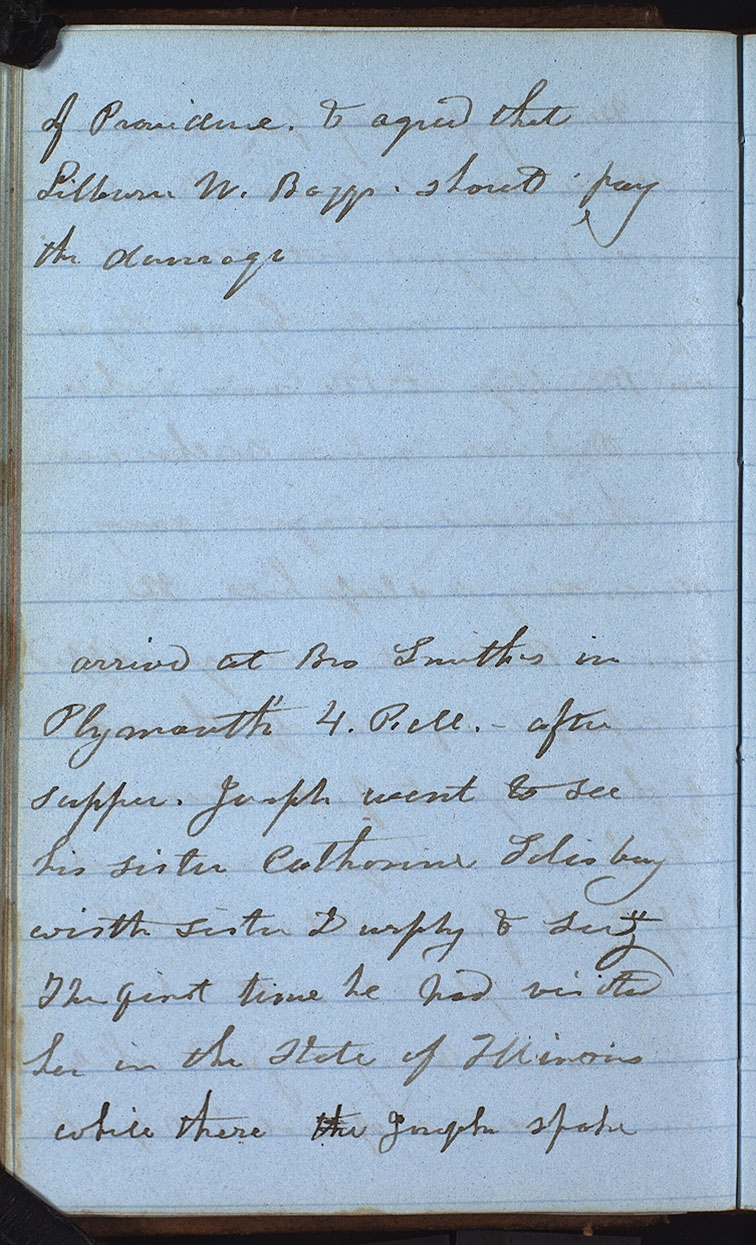 of Providence. & agreed that
Lilburn W. Boggs. should pay
the damage
arrived at Bro Smith's in
Plymouth 4. P.M. - after
supper. Joseph went to see
his sister Catherine Salisbury
with sister Durphy &
The first time he had visited
her in the State of Illinois
while there the Joseph spoke